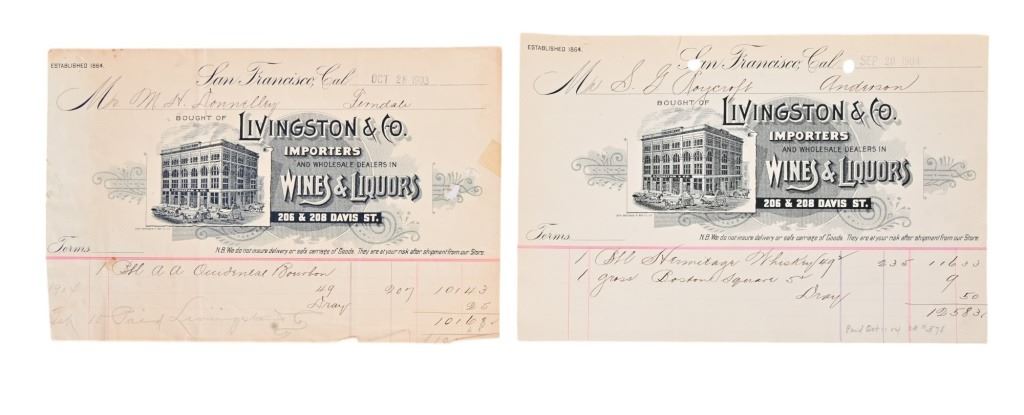 ESTABLISHED 1864.
San Francisco, Cal. OCT 28 1903
Mr M. H. Donnelley Ferndale
BOUGHT OF
LIVINGSTON & CO.
IMPORTERS
AND WHOLESALE DEALERS IN
WINES & LIQUORS
206 & 208 DAVIS ST.
Terms
N.B. We do not insure delivery or safe carriage of Goods. They are at your risk after shipment from our Store.
1 Bbl A A Occidental Bourbon
49 207 101 43
Dray 25
101 68
Feb 15 Paid Livingston & Co
ESTABLISHED 1864.
San Francisco, Cal. SEP 20 1904
Mr S. G. Roycroft Anderson
BOUGHT OF
LIVINGSTON & CO.
IMPORTERS
AND WHOLESALE DEALERS IN
WINES & LIQUORS
206 & 208 DAVIS ST.
Terms
N.B. We do not insure delivery or safe carriage of Goods. They are at your risk after shipment from our Store.
1 Bbl Hermitage Whiskey 49 235 116 33
1 gross Boston Square 9
Dray 50
125 83
Paid Oct